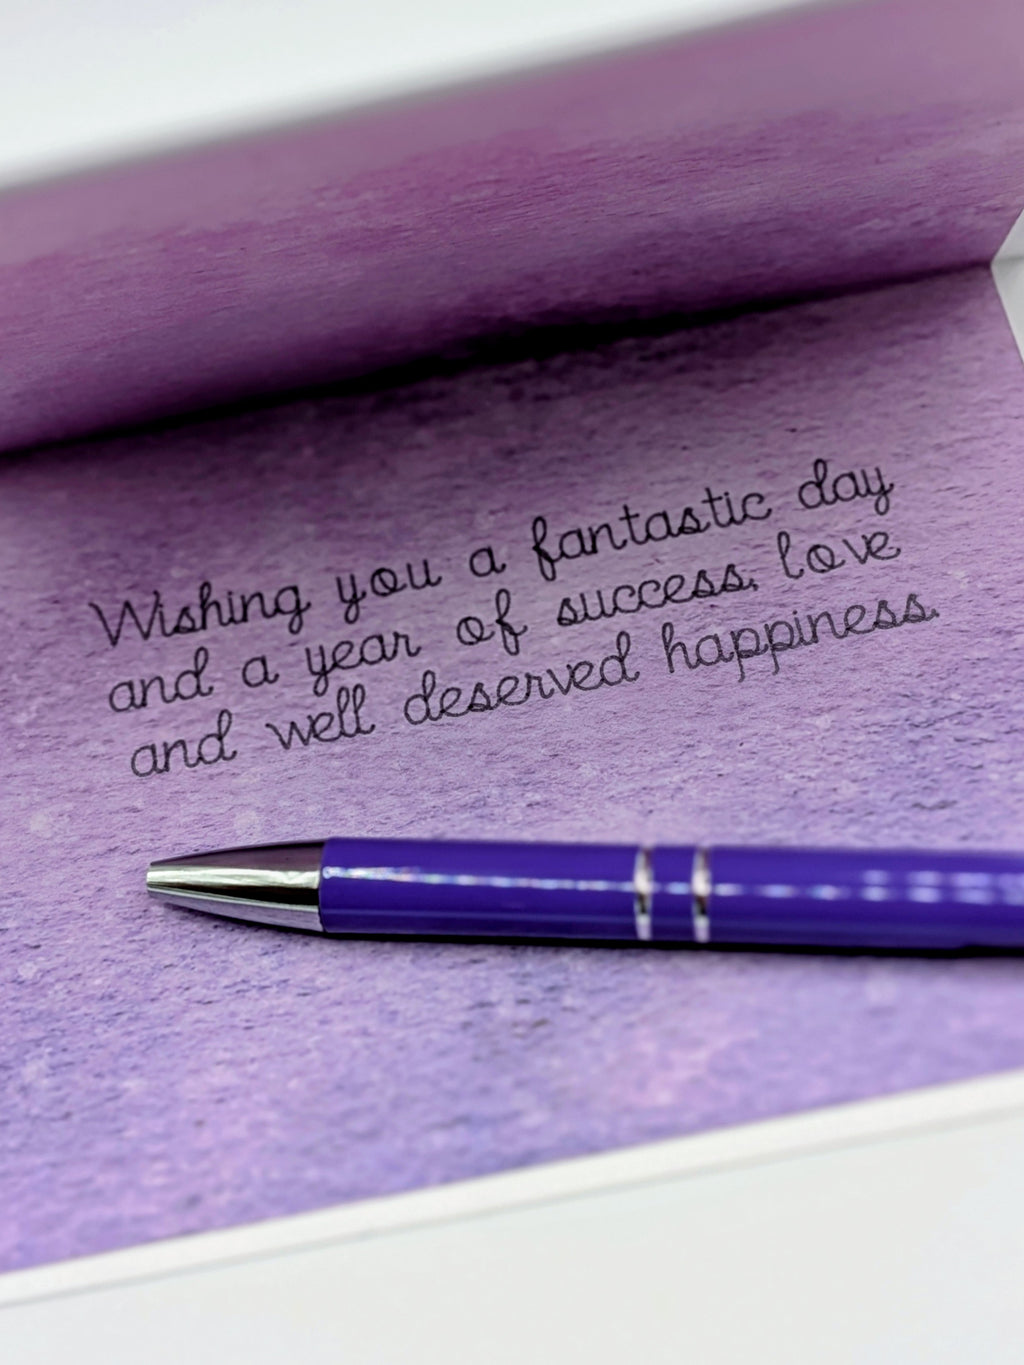 Wishing you a fantastic day
and a year of success, love
and well deserved happiness.